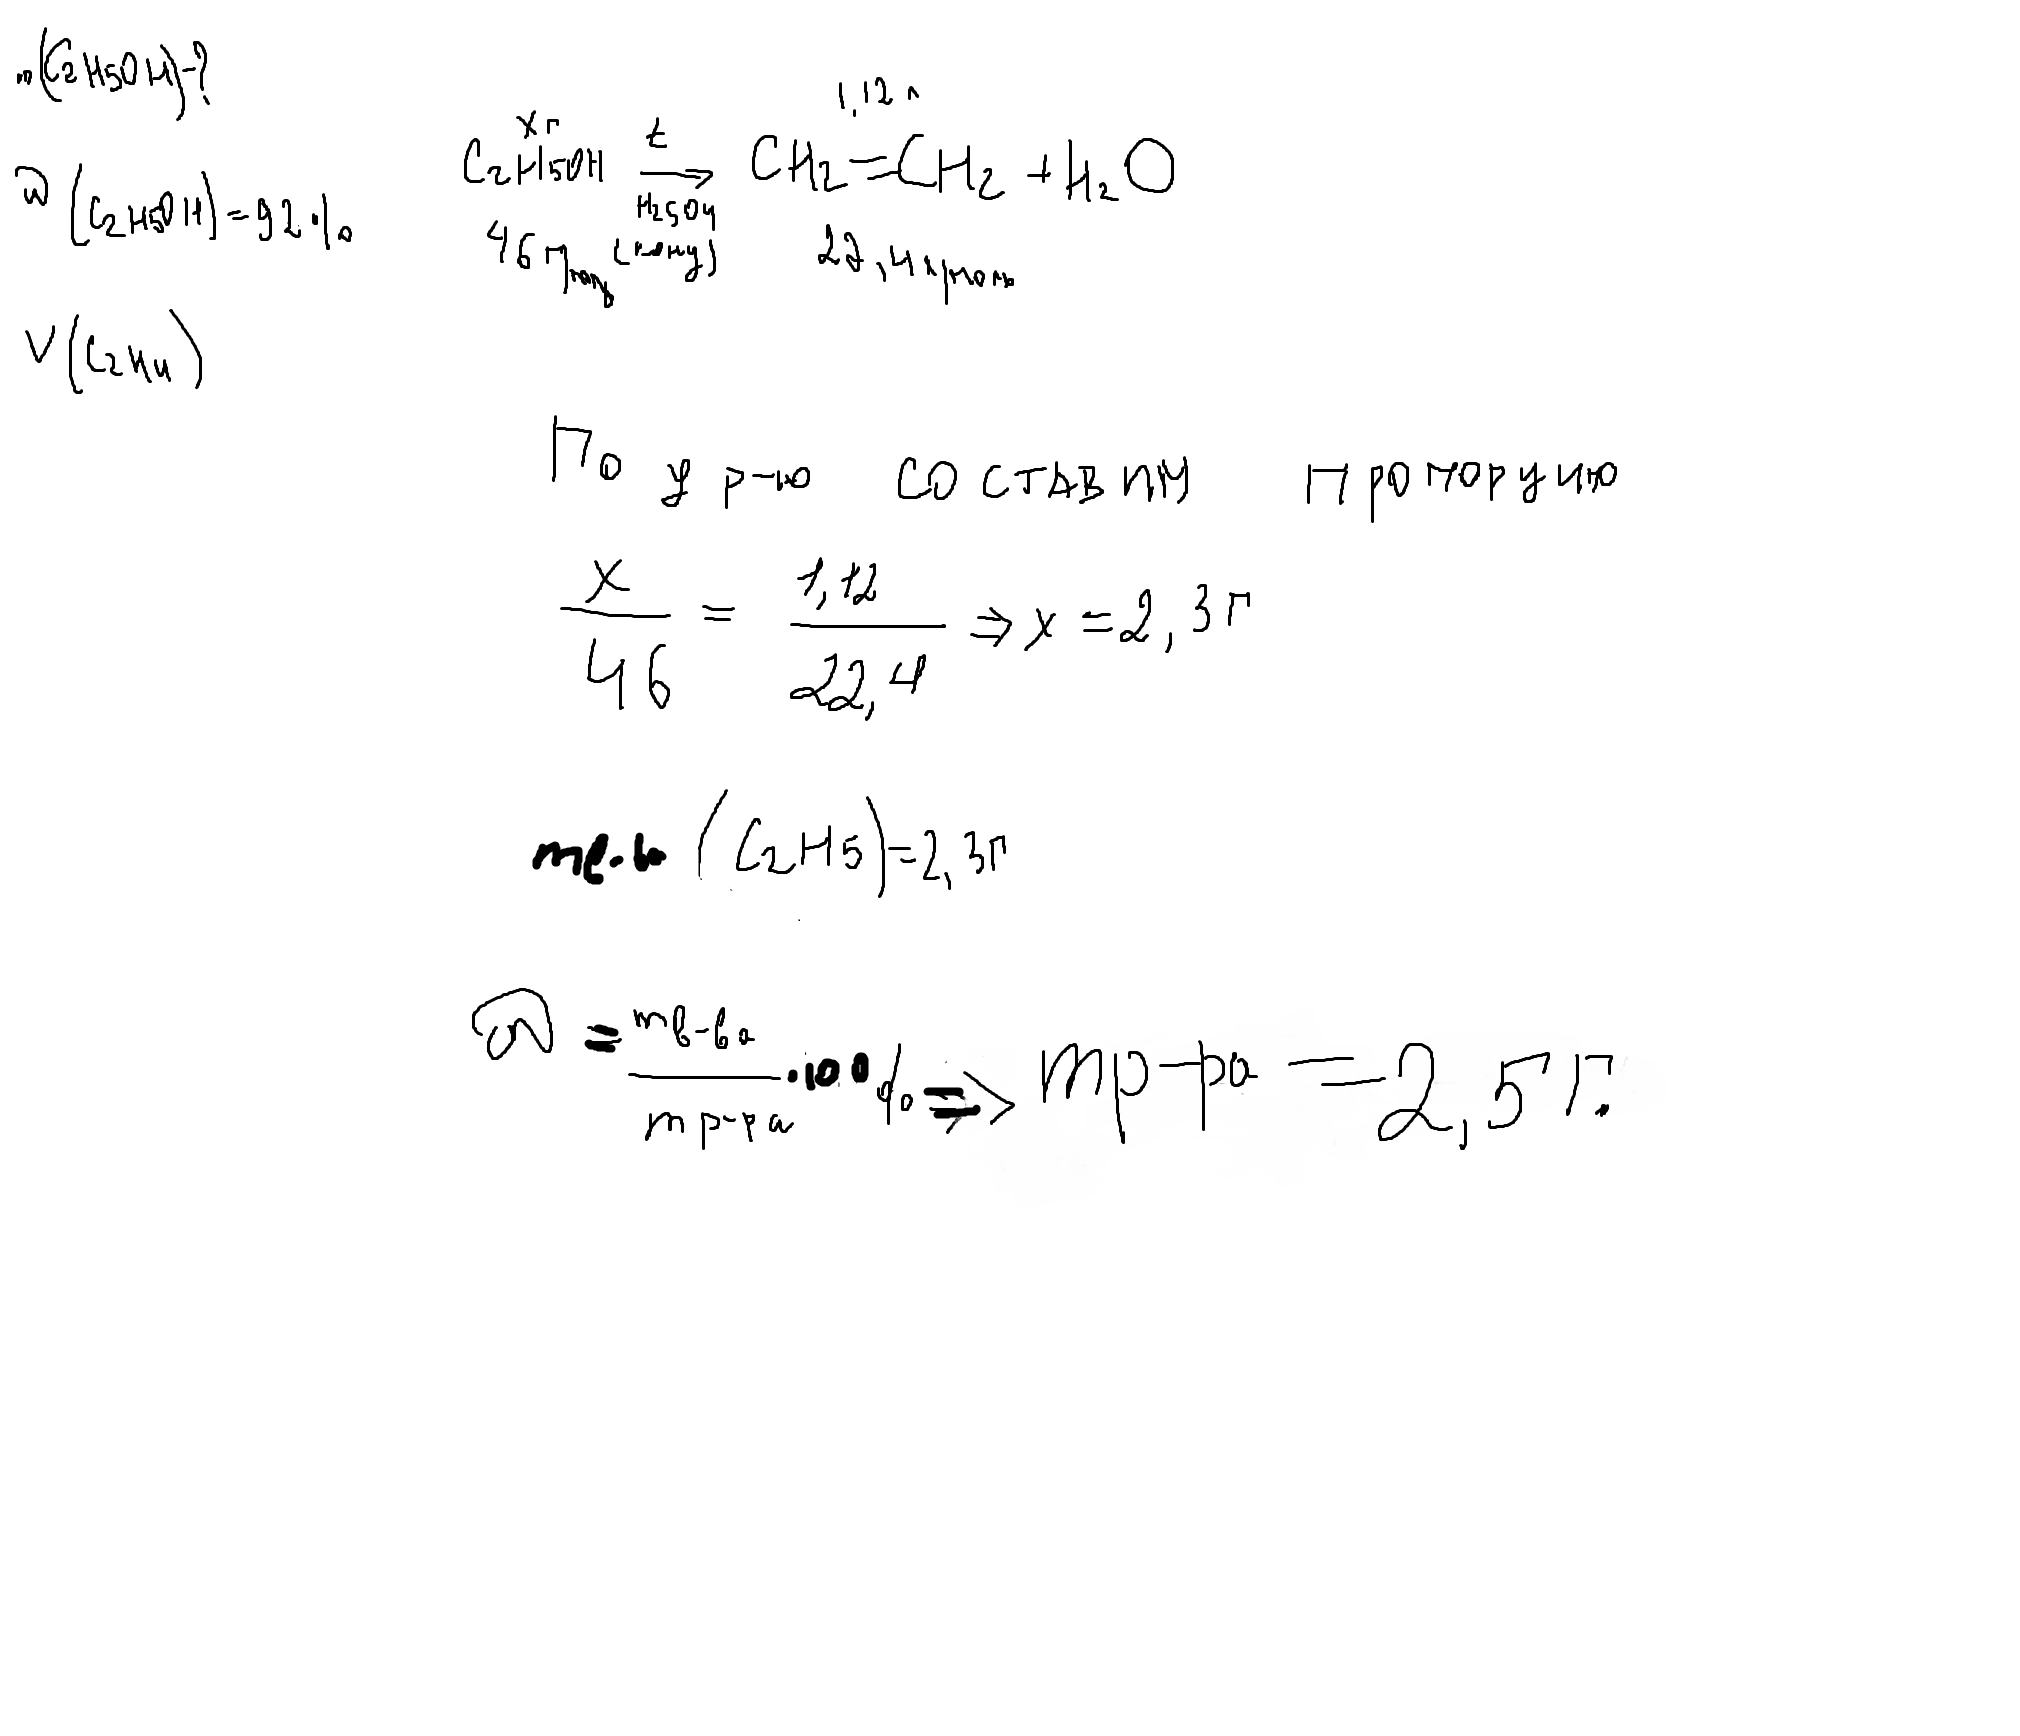 m(C2H5OH)-?
ω(C2H5OH)=92%
V(C2H4)
xг 1,12 л
C2H5OH t→ H2SO4 (конц) CH2=CH2 + H2O
46 г/моль 22,4 л/моль
По ур-ю составим пропорцию
x/46 = 1,12/22,4 ⇒ x = 2,3 г
mв-ва (C2H5)=2,3г
ω = mв-ва/mр-ра · 100% => mр-ра = 2,5 г.